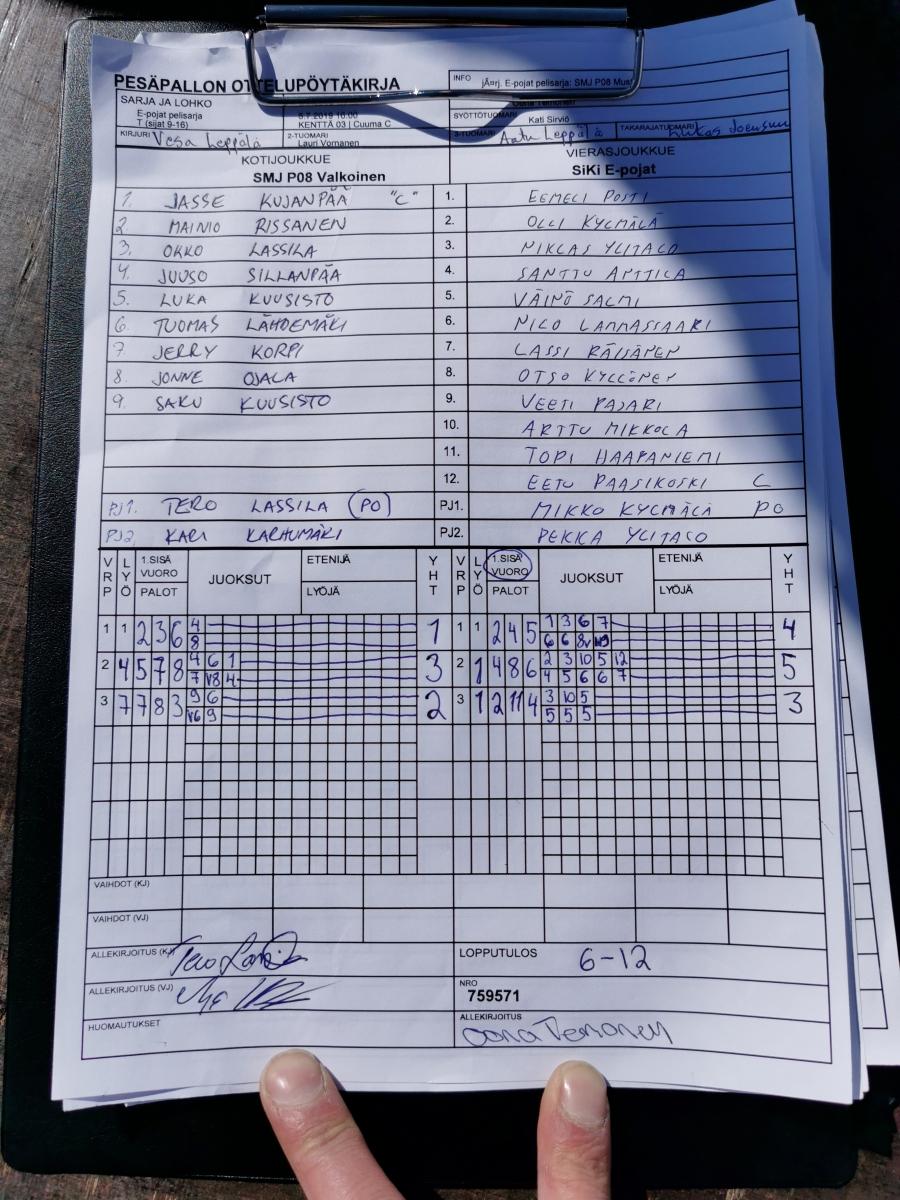 PESÄPALLON OTTELUPÖYTÄKIRJA
INFO jÃ¤rj. E-pojat pelisarja: SMJ P08 Must
SARJA JA LOHKO
E-pojat pelisarja
T (sijat 9-16)
5.7.2019 10.00
KENTTÄ 03 | Cuuma C
SYÖTTÖTUOMARI Kati Sirviö
KIRJURI Vesa Leppälä
2-TUOMARI
Lauri Vornanen
3-TUOMARI Aatu Leppälä
TAKARAJATUOMARI Lukas Joensuu
KOTIJOUKKUE
SMJ P08 Valkoinen
VIERASJOUKKUE
SiKi E-pojat
1. JASSE KUJANPÄÄ "C"
2. MAINIO RISSANEN
3. OKKO LASSILA
4. JUUSO SILLANPÄÄ
5. LUKA KUUSISTO
6. TUOMAS LÄHDEMÄKI
7. JERRY KORPI
8. JONNE OJALA
9. SAKU KUUSISTO
PJ1. TERO LASSILA (PO)
PJ2. KARI KARHUMÄKI
1. EEMELI POSTI
2. OLLI KYLMÄLÄ
3. NIKLAS YLITALO
4. SANTTU ANTTILA
5. VÄINÖ SALMI
6. NILO LAMMASSAARI
7. LASSI RÄISÄNEN
8. OTSO KYLLÖNEN
9. VEETI PAJARI
10. ARTTU MIKKOLA
11. TOPI HAAPANIEMI
12. EETU PAASIKOSKI C
PJ1. MIKKO KYLMÄLÄ PO
PJ2. PEKKA YLITALO
VRP LYÖ 1.SISÄ VUORO PALOT JUOKSUT ETENIJÄ LYÖJÄ YHT
1 1 2 3 6 4 1
8
2 4 5 7 8 4 6 1 3
7 V8 4
3 7 7 8 3 9 6 2
V6 9
VRP LYÖ 1.SISÄ VUORO PALOT JUOKSUT ETENIJÄ LYÖJÄ YHT
1 1 2 4 5 1 3 6 7 4
6 6 8
2 1 4 8 6 2 3 10 5 12 5
4 5 6 6 7
3 1 2 11 4 3 10 5 3
5 5 5
VAIHDOT (KJ)
VAIHDOT (VJ)
ALLEKIRJOITUS (KJ)
ALLEKIRJOITUS (VJ)
HUOMAUTUKSET
LOPPUTULOS 6-12
NRO
759571
ALLEKIRJOITUS
Oona Temonen